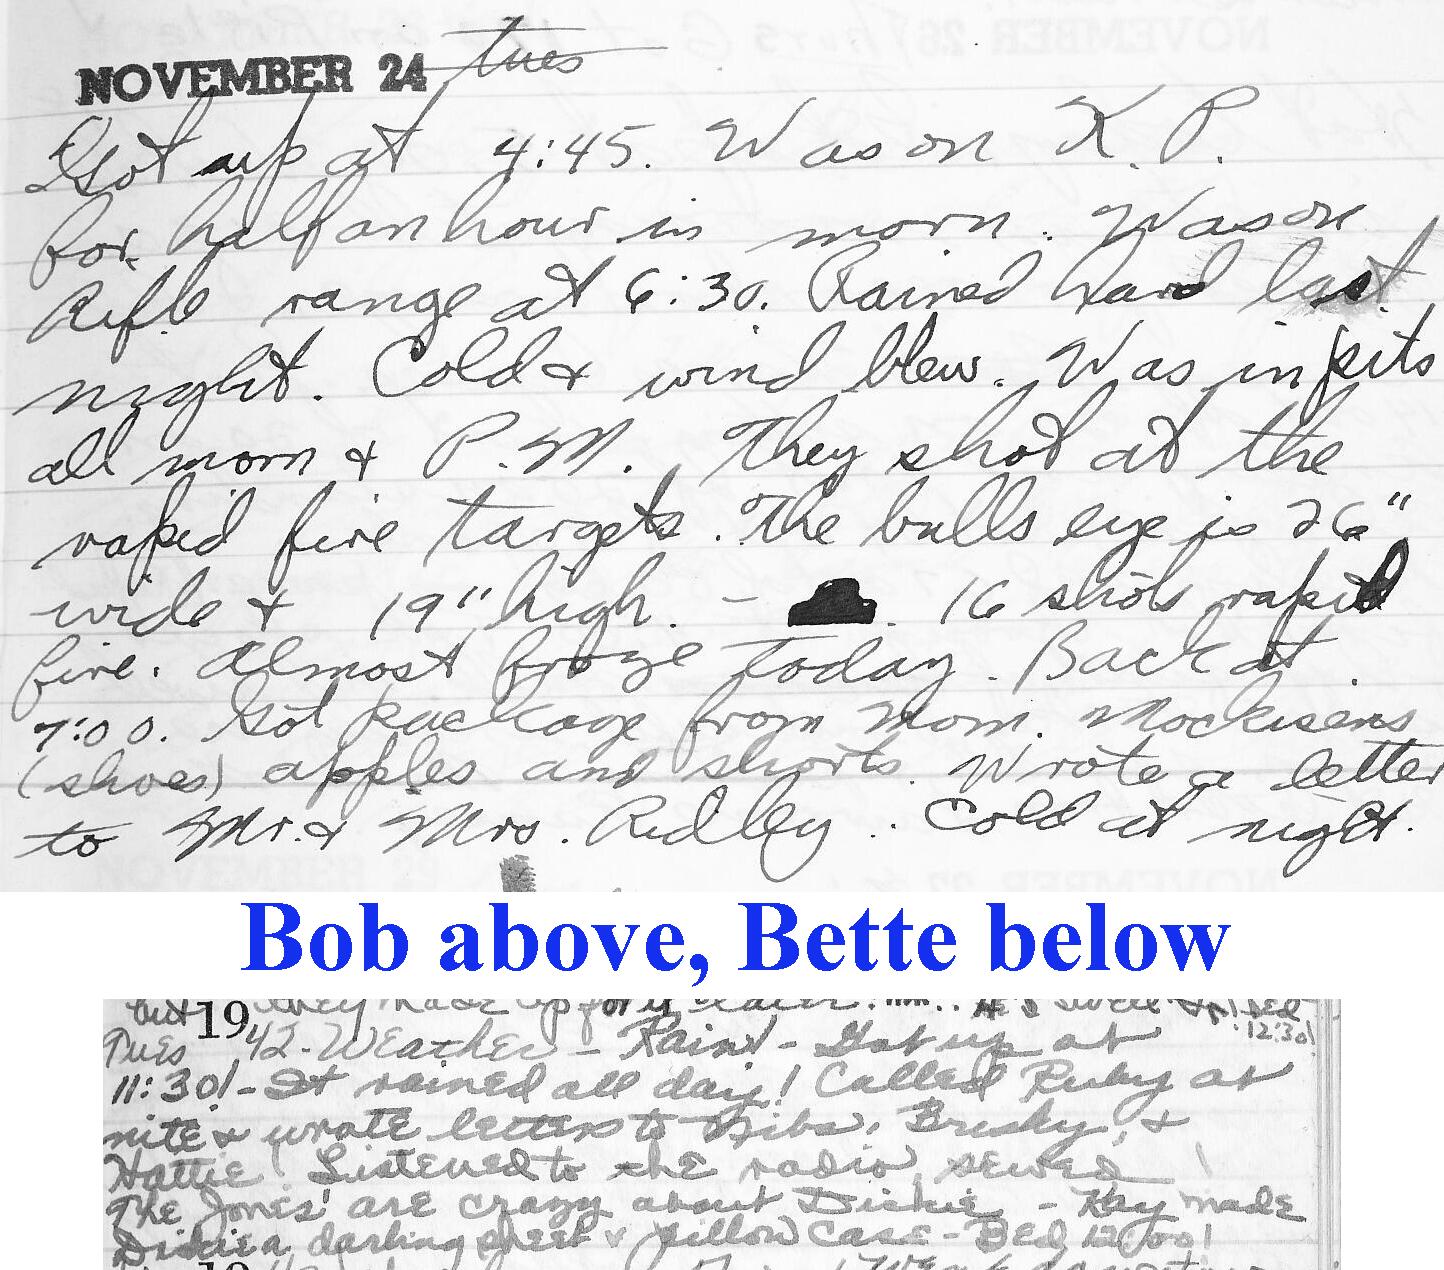 NOVEMBER 24 Tues
Got up at 4:45. Was on K.P.
for half an hour in morn. Was on
Rifle range at 6:30. Rained hard last
night. Cold & wind blew. Was in pits
all morn & P.M. They shot at the
rapid fire targets. The bulls eye is 26"
wide & 19" high. - . 16 shots rapid
fire. Almost froze today. Back at
7:00. Got package from Mom. Mockisens
(shoes) apples and shorts. Wrote a letter
to Mr. & Mrs. Ridley. Cold at night.
Bob above, Bette below
but they made up for it later. He's swell Bed
12:30!
Tues 1942 - Weather - Rain! - Got up at
11:30! - It rained all day! Called Ruby at
nite & wrote letters to Nibs, Brisky, &
Hattie! Listened to the radio, sewed
The Jones' are crazy about Dickie - Kay made
Dickie a darling sheet & pillow case - Bed 12:00!
19